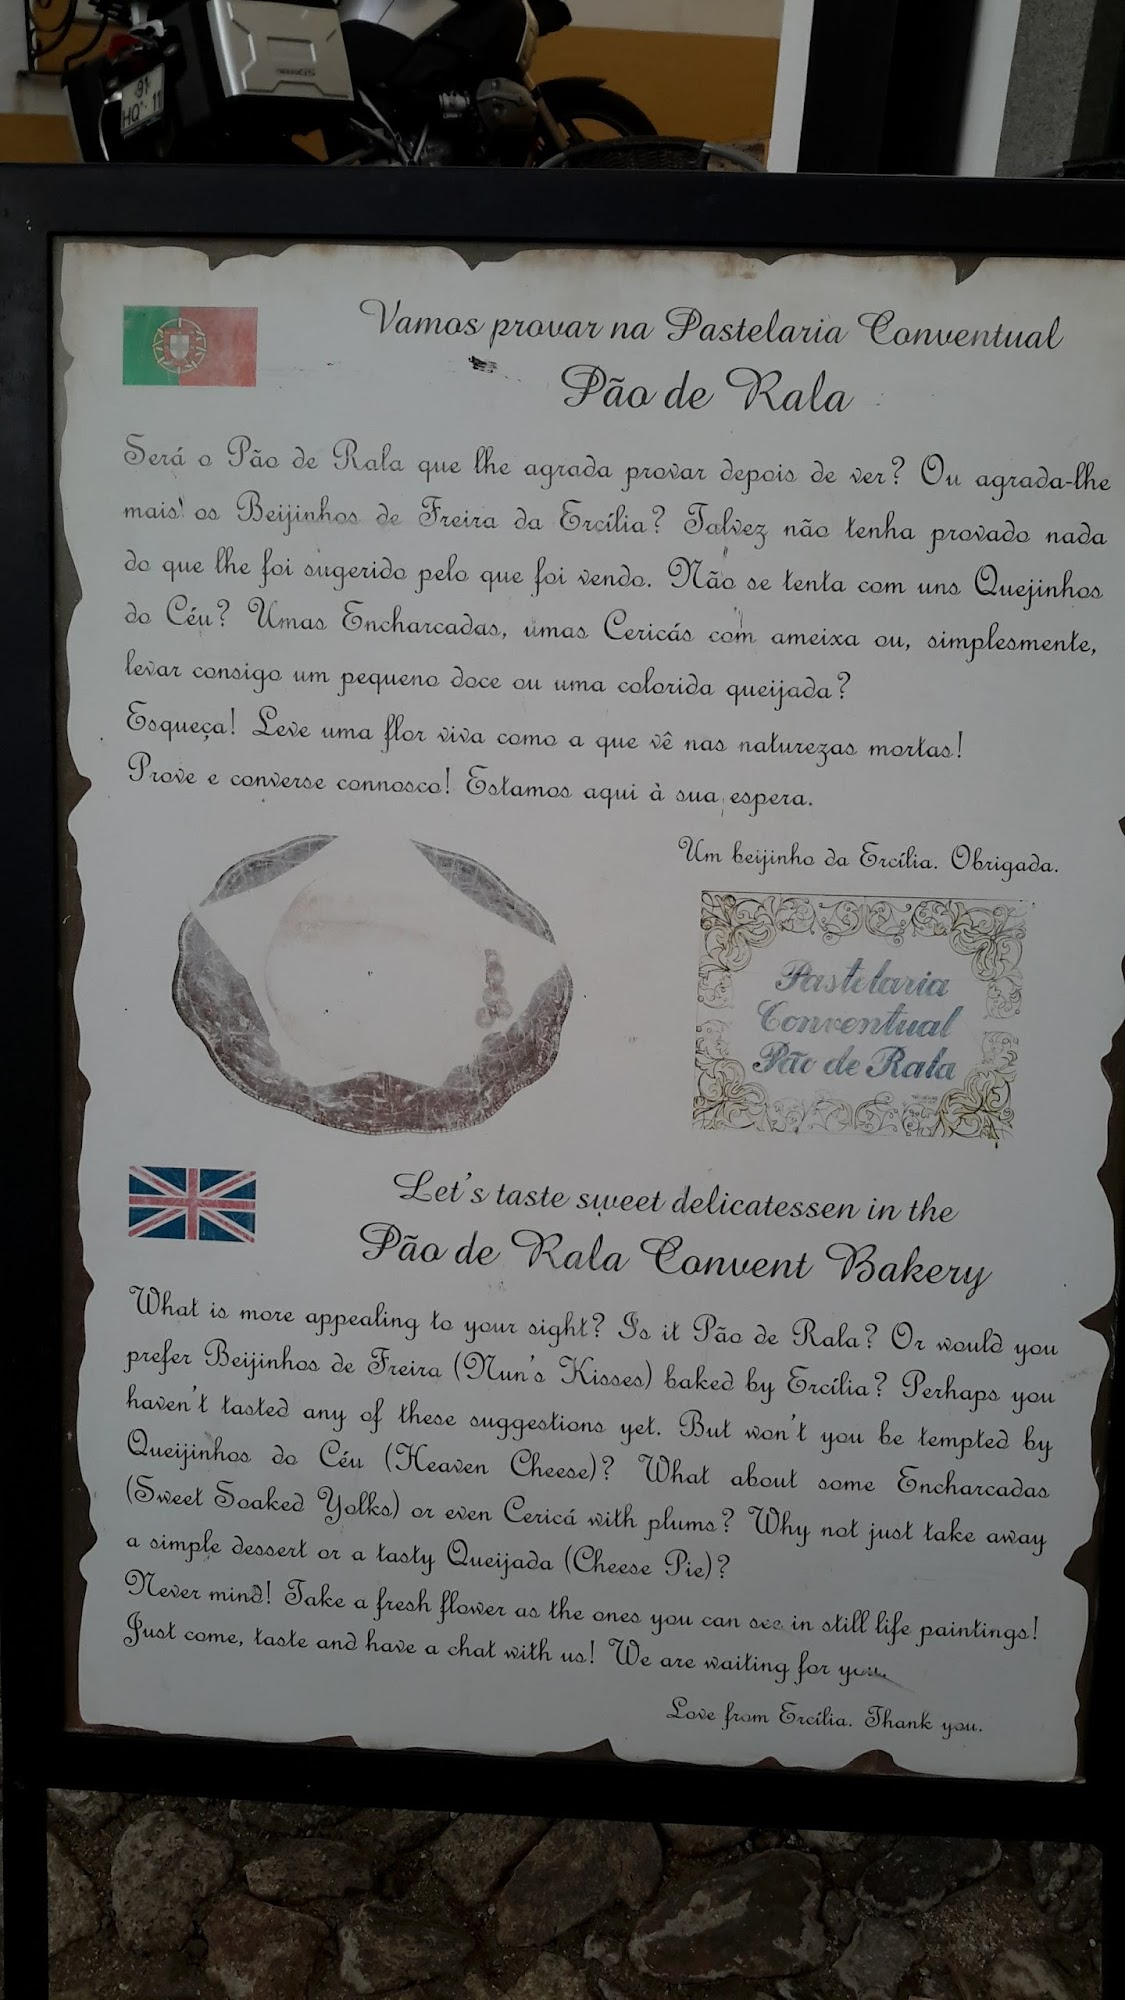 91
HQ·11
Vamos provar na Pastelaria Conventual
Pão de Rala
Será o Pão de Rala que lhe agrada provar depois de ver? Ou agrada-lhe
mais os Beijinhos de Freira da Ercília? Talvez não tenha provado nada
do que lhe foi sugerido pelo que foi vendo. Não se tenta com uns Quejinhos
do Céu? Umas Encharcadas, umas Cericás com ameixa ou, simplesmente,
levar consigo um pequeno doce ou uma colorida queijada?
Esqueça! Leve uma flor viva como a que vê nas naturezas mortas!
Prove e converse connosco! Estamos aqui à sua espera.
Um beijinho da Ercília. Obrigada.
Pastelaria
Conventual
Pão de Rala
Let's taste sweet delicatessen in the
Pão de Rala Convent Bakery
What is more appealing to your sight? Is it Pão de Rala? Or would you
prefer Beijinhos de Freira (Nun's Kisses) baked by Ercília? Perhaps you
haven't tasted any of these suggestions yet. But won't you be tempted by
Queijinhos do Céu (Heaven Cheese)? What about some Encharcadas
(Sweet Soaked Yolks) or even Cericá with plums? Why not just take away
a simple dessert or a tasty Queijada (Cheese Pie)?
Never mind! Take a fresh flower as the ones you can see in still life paintings!
Just come, taste and have a chat with us! We are waiting for you.
Love from Ercília. Thank you.